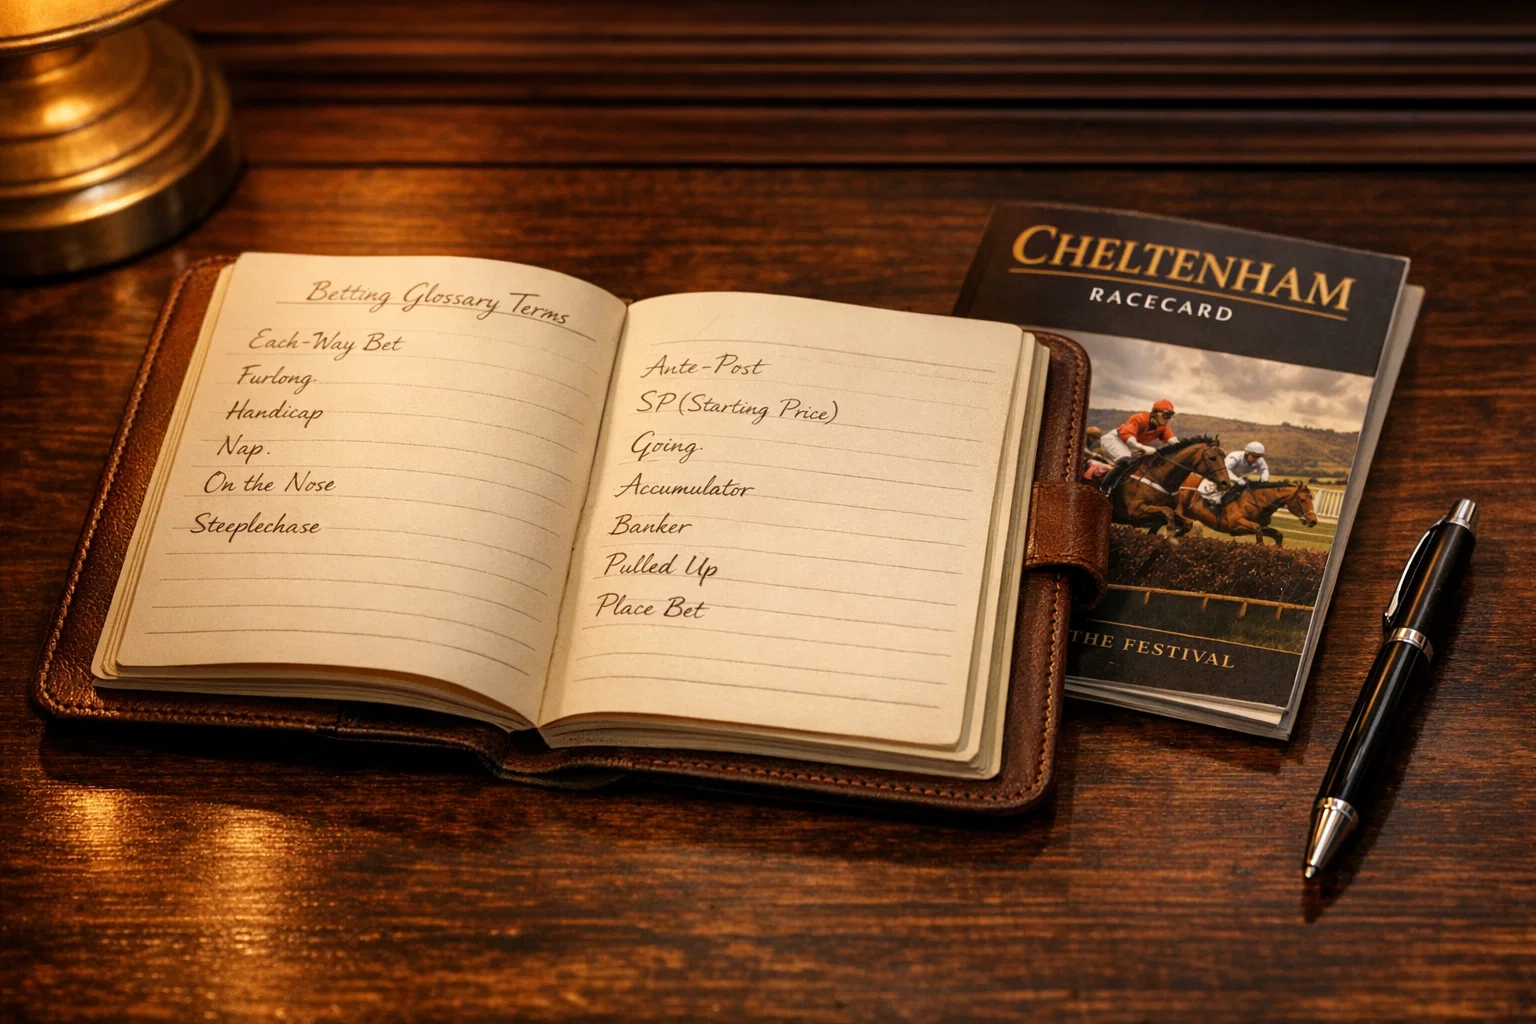 Betting Glossary Terms
Each-Way Bet
Furlong.
Handicap
Nap.
On the Nose
Steeplechase
Ante-Post
SP (Starting Price)
Going.
Accumulator
Banker
Pulled Up
Place Bet
CHELTENHAM
RACECARD
THE FESTIVAL